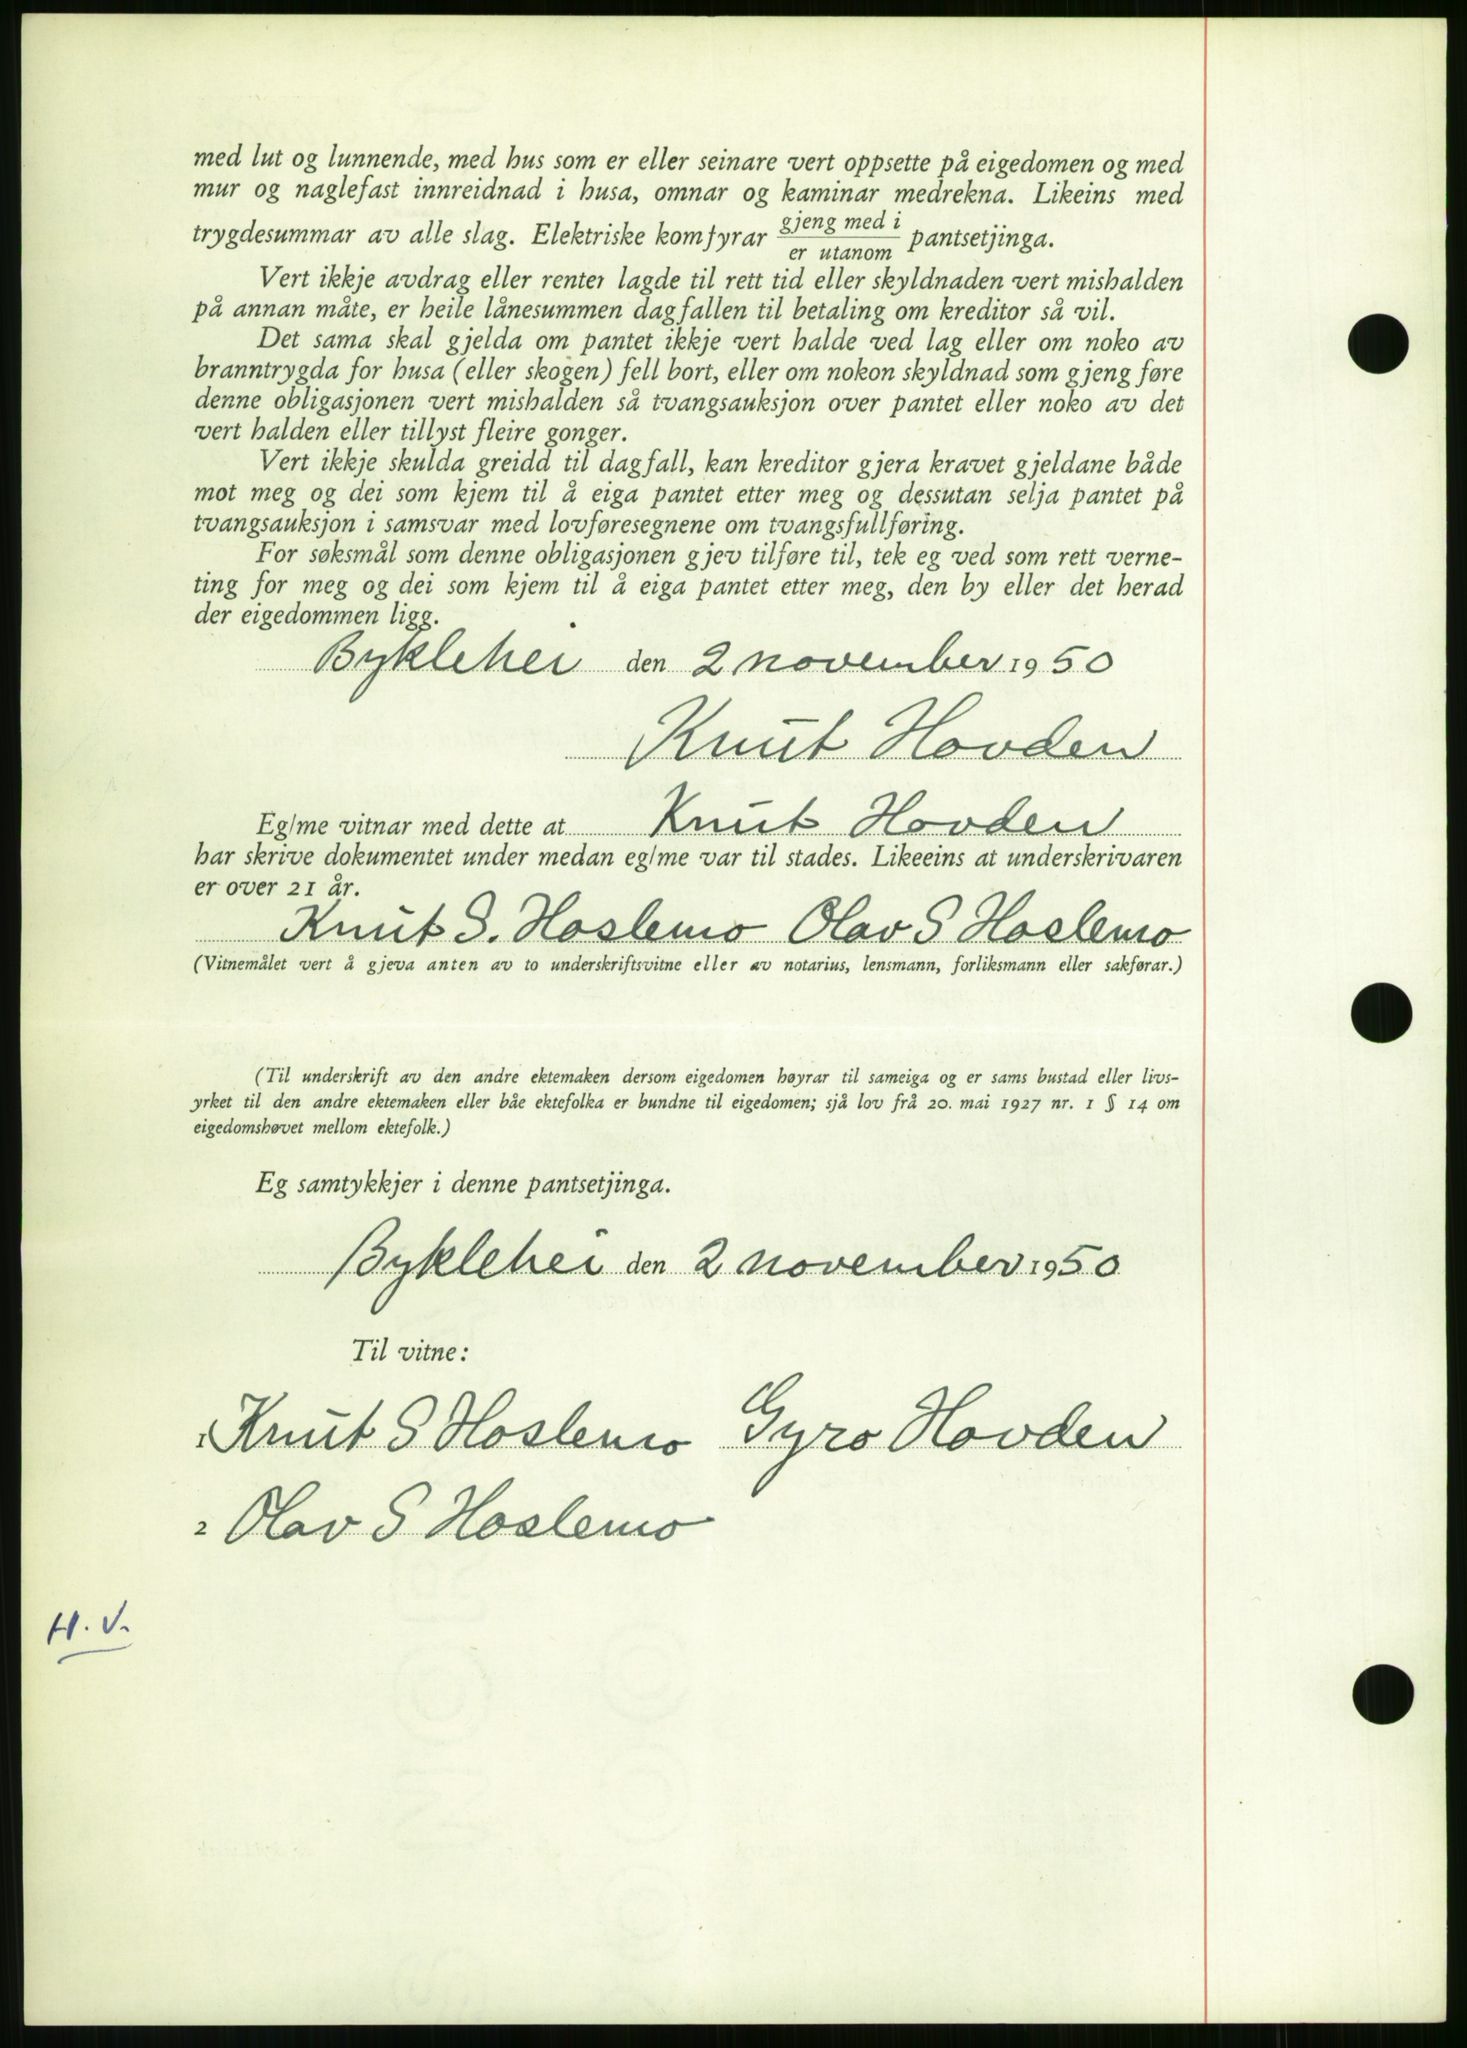 med lut og lunnende, med hus som er eller seinare vert oppsette på eigedomen og med
mur og naglefast innreidnad i husa, omnar og kaminar medrekna. Likeins med
trygdesummar av alle slag. Elektriske komfyrar gjeng med i / er utanom pantsetjinga.
Vert ikkje avdrag eller renter lagde til rett tid eller skyldnaden vert mishalden
på annan måte, er heile lånesummen dagfallen til betaling om kreditor så vil.
Det sama skal gjelda om pantet ikkje vert halde ved lag eller om noko av
branntrygda for husa (eller skogen) fell bort, eller om nokon skyldnad som gjeng føre
denne obligasjonen vert mishalden så tvangsauksjon over pantet eller noko av det
vert halden eller tillyst fleire gonger.
Vert ikkje skulda greidd til dagfall, kan kreditor gjera kravet gjeldane både
mot meg og dei som kjem til å eiga pantet etter meg og dessutan selja pantet på
tvangsauksjon i samsvar med lovføresegnene om tvangsfullføring.
For søksmål som denne obligasjonen gjev tilføre til, tek eg ved som rett verne-
ting for meg og dei som kjem til å eiga pantet etter meg, den by eller det herad
der eigedommen ligg.
Byklehei den 2 november 1950
Knut Hovden
Eg/me vitnar med dette at Knut Hovden
har skrive dokumentet under medan eg/me var til stades. Likeeins at underskrivaren
er over 21 år.
Knut S. Hoslemo Olav S Hoslemo
(Vitnemålet vert å gjeva anten av to underskriftsvitne eller av notarius, lensmann, forliksmann eller sakførar.)
(Til underskrift av den andre ektemaken dersom eigedomen høyrar til sameiga og er sams bustad eller livs-
yrket til den andre ektemaken eller båe ektefolka er bundne til eigedomen; sjå lov frå 20. mai 1927 nr. 1 § 14 om
eigedomshøvet mellom ektefolk.)
Eg samtykkjer i denne pantsetjinga.
Byklehei den 2 november 1950
Til vitne:
1 Knut S Hoslemo Gyro Hovden
2 Olav S Hoslemo
H. V.